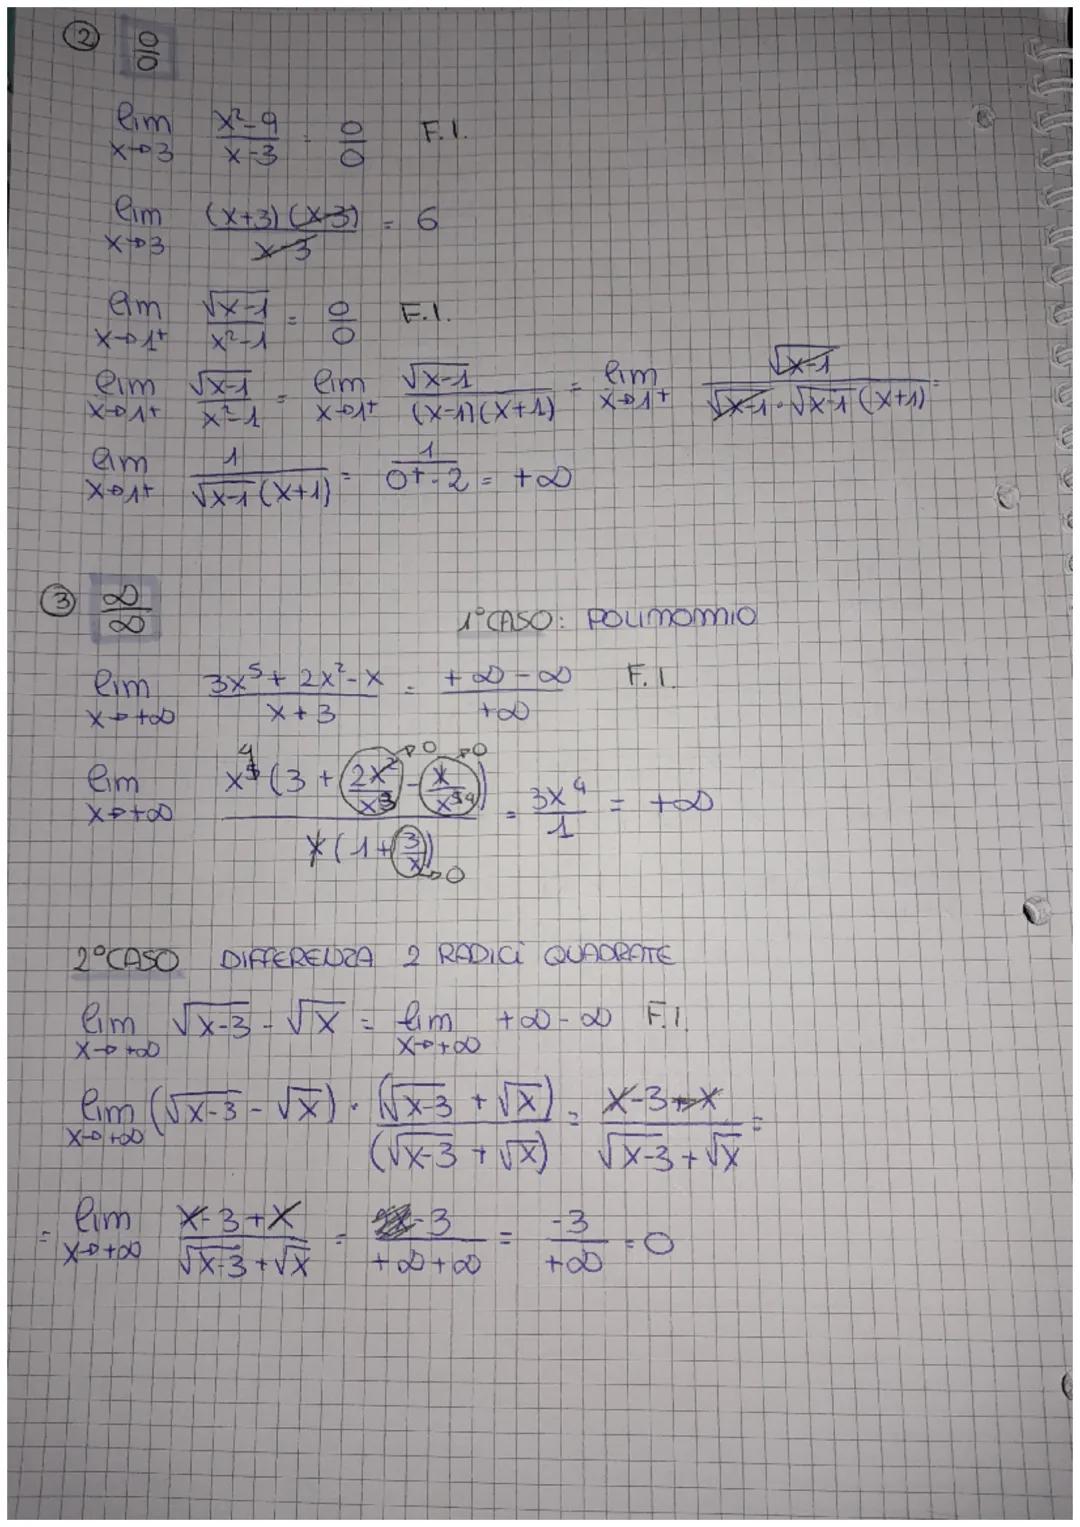 ② 0/0
lim x→3 (x²-9)/(x-3) = 0/0 F.I.
lim x→3 (x+3)(x-3)/(x-3) = 6
lim x→1⁺ √(x-1)/(x²-1) = 0/0 F.I.
lim x→1⁺ √(x-1)/(x²-1) = lim x→1⁺ √(x-1)/((x-1)(x+1)) = lim x→1⁺ √(x-1)/(√(x-1)·√(x-1)(x+1)) =
lim x→1⁺ 1/(√(x-1)(x+1)) = 1/(0⁺·2) = +∞
③ ∞/∞ 1° CASO: POLINOMIO
lim x→+∞ (3x⁵+2x²-x)/(x+3) = (+∞-∞)/(+∞) F.I.
lim x→+∞ x⁴(3+2x²/x³→0 - x/x⁵⁴→0)/(x(1+3/x→0)) = 3x⁴/1 = +∞
2° CASO DIFFERENZA 2 RADICI QUADRATE
lim x→+∞ √(x-3) - √x = lim x→+∞ +∞-∞ F.I.
lim x→+∞ (√(x-3) - √x) · (√(x-3) + √x)/(√(x-3) + √x) = (x-3+x)/(√(x-3)+√x) =
= lim x→+∞ (x-3+x)/(√(x-3)+√x) = -3/(+∞+∞) = -3/+∞ = 0